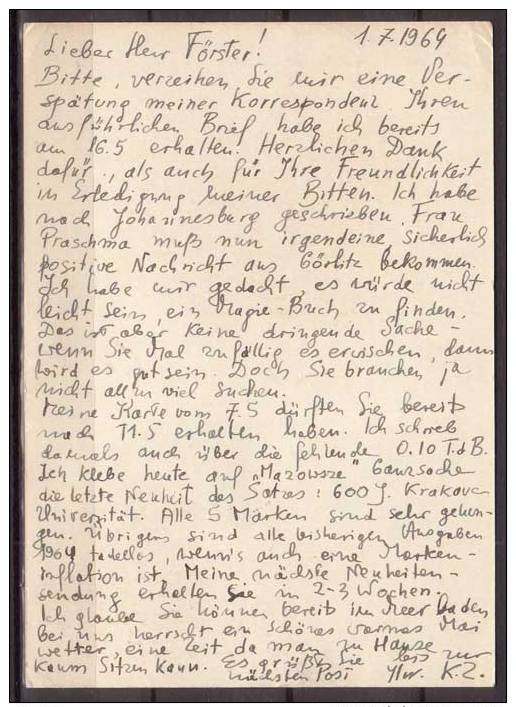 1.7.1964
Lieber Herr Förster!
Bitte, verzeihen Sie mir eine Ver-
spätung meiner Korrespondenz. Ihren
ausführlichen Brief habe ich bereits
am 16.5 erhalten. Herzlichen Dank
dafür, als auch für Ihre Freundlichkeit
in Erledigung meiner Bitten. Ich habe
nach Johannesburg geschrieben. Frau
Praschma muß nun irgendeine, sicherlich
positive Nachricht aus Görlitz bekommen.
Ich habe mir gedacht, es würde nicht
leicht sein, ein Magie-Buch zu finden.
Das ist aber keine dringende Sache -
wenn Sie Mal zufällig es erwischen, dann
wird es gut sein. Doch Sie brauchen ja
nicht allzu viel suchen.
Meine Karte vom 7.5 dürften Sie bereits
nach 11.5 erhalten haben. Ich schrieb
damals auch über die fehlende 0.10 T.d.B.
Ich klebe heute auf "Mazowsze" Ganzsache
die letzte Neuheit des Satzes: 600 J. Krakauer
Universität. Alle 5 Marken sind sehr gelun-
gen. Übrigens sind alle bisherigen Ausgaben
1964 tadellos, wenn's auch eine Marken-
inflation ist. Meine nächste Neuheiten-
sendung erhalten Sie in 2-3 Wochen.
Ich glaube Sie können bereits im Meer baden
Bei uns herrscht ein schönes warmes Mai
wetter, eine Zeit da man zu Hause
kaum sitzen kann. Es grüßt Sie bis zur
nächsten Post Ihr K.Z.